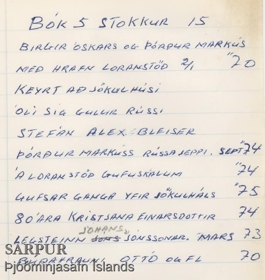 BÓK 5 STOKKUR 15
BIRGIR ÓSKARS OG ÞÓRÐUR MARKÚS
MEÐ HRAFN LORANSTÖÐ 2/1 "70
KEYRT AÐ JÖKULHÚSI
ÓLI SIG GULUR RÚSSI
STEFÁN ALEX BLEISER
ÞÓRÐUR MARKÚSS RÚSSAJEPPI. SEPT "74
Á LORANSTÖÐ GUFUSKÁLUM "74
GUFSAR GANGA YFIR JÖKULHÁLS "75
80 ÁRA KRISTJANA EINARSDOTTIR 74
JÓHANS
LEGSTEINN JÓNSSONAR. MARS 73
OTTÓ OG FL 70
SARPUR
Þjóðminjasafn Íslands